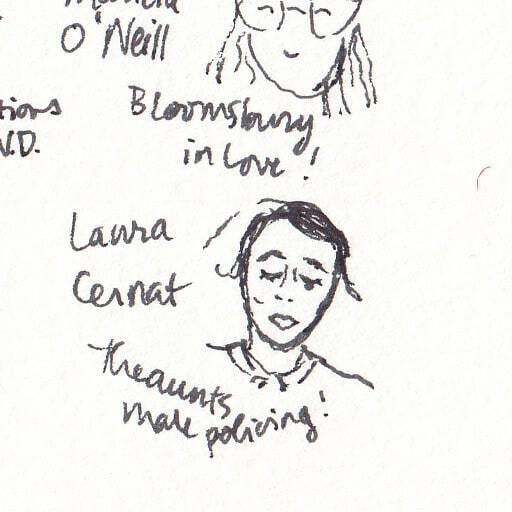 O'Neill
tions
V.D.
Bloomsbury
in Love!
Laura
Cernat
The aunts
male policing!